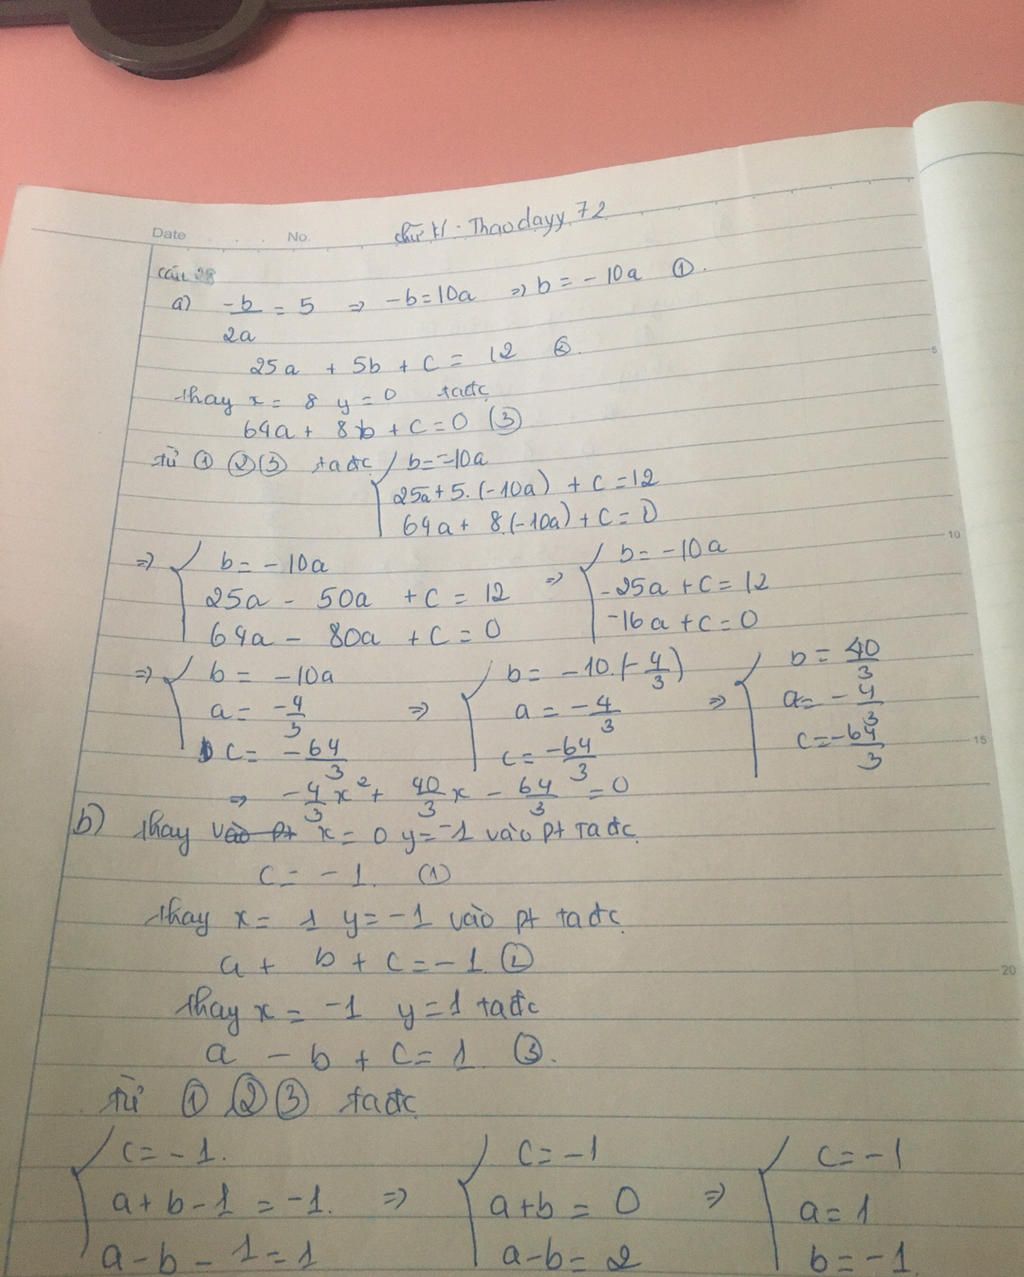 Date No.
chữ kí . Thaodayy 72
Câu 28
a) -b/2a = 5 => -b = 10a => b = -10a ①.
25a + 5b + c = 12 ②.
thay x = 8 y = 0 ta đc
64a + 8b + c = 0 (3)
từ ① ② ③ ta đc { b = -10a
25a + 5.(-10a) + c = 12
64a + 8.(-10a) + c = 0
=> { b = -10a => { b = -10a
25a - 50a + c = 12 -25a + c = 12
64a - 80a + c = 0 -16a + c = 0
=> { b = -10a => { b = -10.(-4/3) => { b = 40/3
a = -4/3 a = -4/3 a = -4/3
c = -64/3 c = -64/3 c = -64/3
=> -4/3x² + 40/3x - 64/3 = 0
b) thay vào pt x = 0 y = -1 vào pt ta đc
c = -1. (1)
thay x = 1 y = -1 vào pt ta đc
a + b + c = -1. ②
thay x = -1 y = 1 ta đc
a - b + c = 1 ③.
từ ① ② ③ ta đc
{ c = -1. => { c = -1 => { c = -1
a + b - 1 = -1. a + b = 0 a = 1
a - b - 1 = 1 a - b = 2 b = -1
5
10
15
20